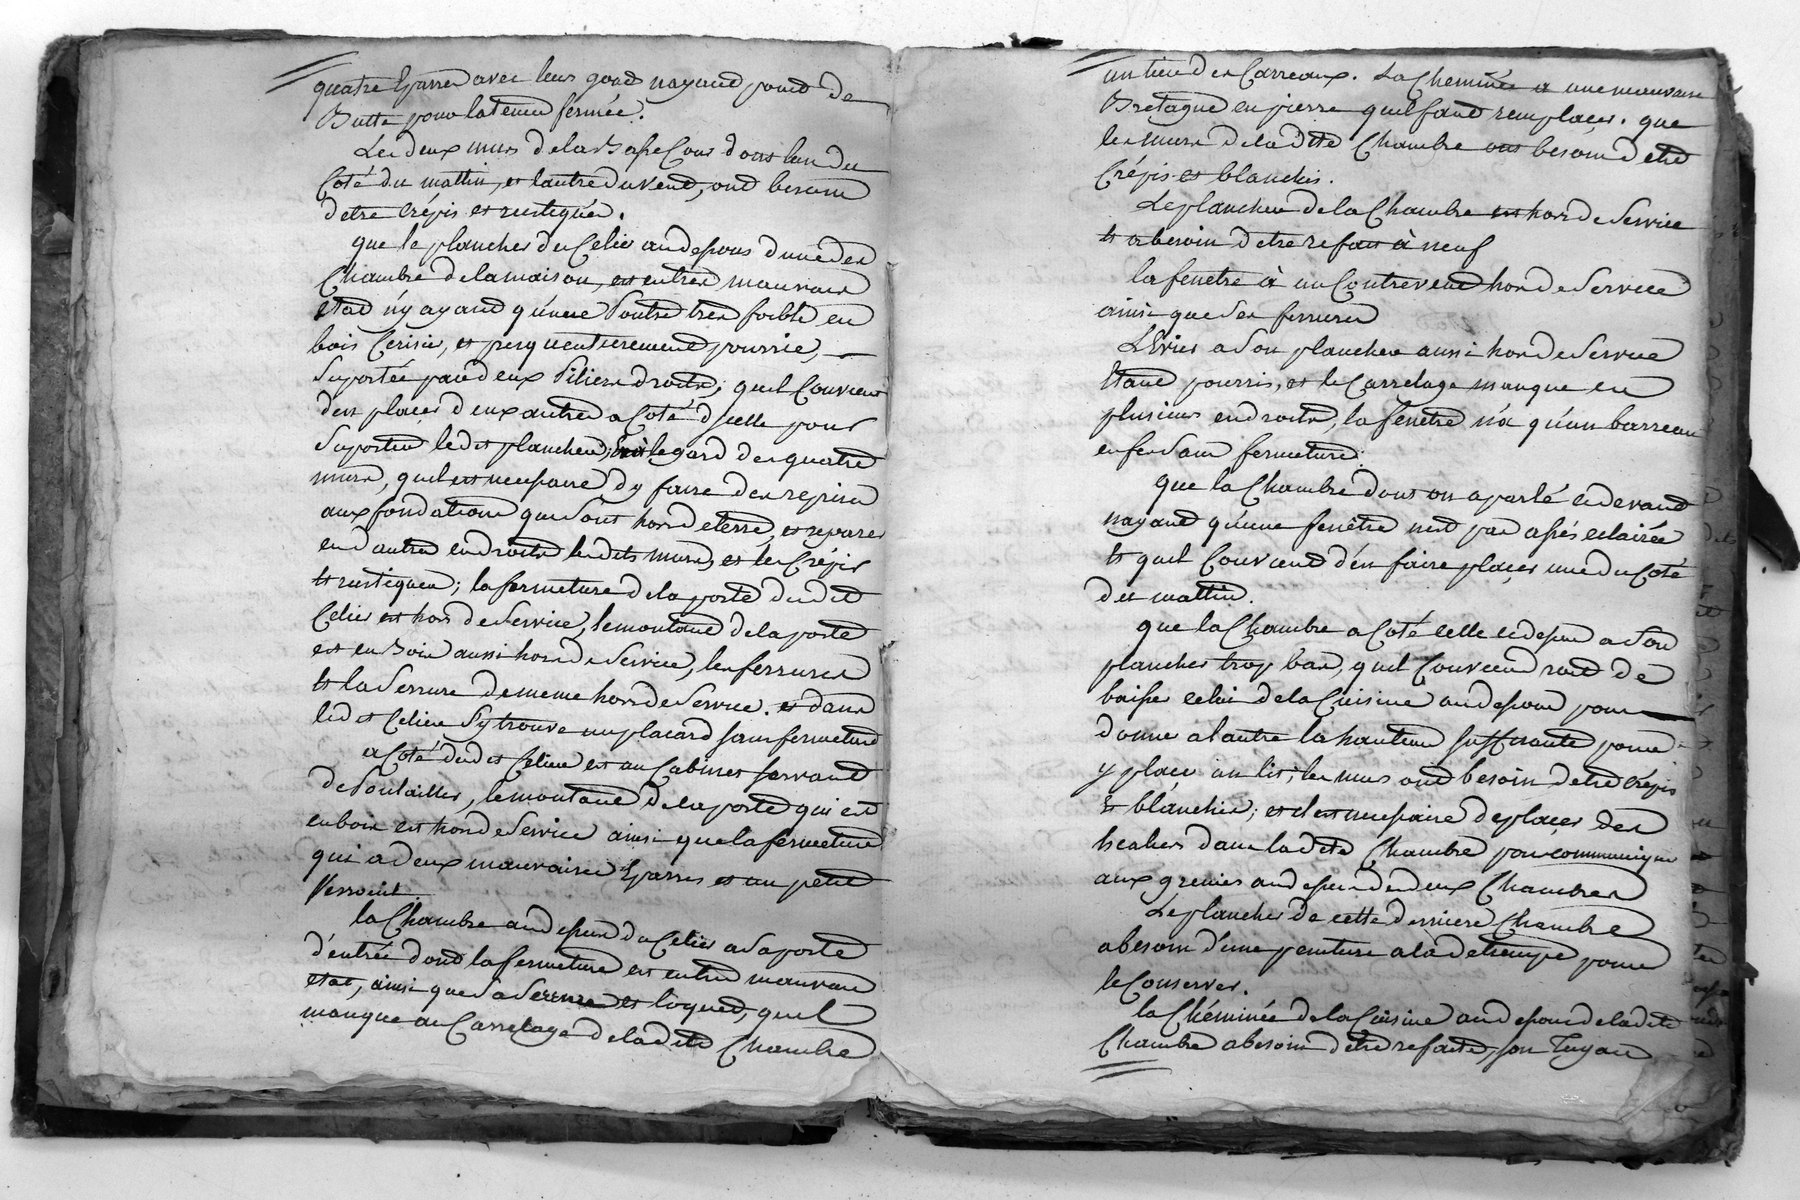 quatre Eparres avec leurs gonds nayant point de
Butte pour la tenir fermée.
Les deux murs de la Basse Cour dont lun du
Coté du mattin, et lautre du vent, ont besoin
detre crépis et rustiqués.
que le plancher du Celier au desous d'une des
Chambre de la maison, est en tres mauvais
etat n'y ayant qu'une Poutre tres foible en
bois Cerisier, et presqu'entierement pourrie,
suportée par deux Piliers droits; quil Convient
den placer deux autres a Coté d'jcelle pour
suporter ledit plancher; Eu Egard des quatre
murs, quil est necessaire d'y faire des reprises
aux fondations qui sont hors de terre, et reparer
en d'autres endroits lesdits murs, et les Crépir
Et rustiquer; la fermeture de la porte dudit
Celier est hors de Service, le montant de la porte
est en Bois aussi hors de Service, les ferrures
Et la Serrure de meme hors de Service. et dans
ledit Celier S'y trouve un placard sans fermeture
a Coté dudit Celier est un Cabinet servant
de Poulailler, le montant de la porte qui est
en bois est hors de Service ainsi que la fermeture
qui a deux mauvaises Eparres et un petit
Verrouil.
la Chambre au dessus du Celier a sa porte
d'entrée dont la fermeture est en tres mauvais
etat, ainsi que sa Serrure et loquet, quil
manque au Carrelage de ladite Chambre
un tiers des Carreaux. La Cheminée a une mauvaise
Bretagne en pierre quil faut remplacer. que
les murs de ladite Chambre ont besoin detre
Crépis et blanchis.
Le plancher de la Chambre est hors de Service
Et a besoin detre refait à neuf
la fenetre à un Contrevent hors de Service
ainsi que ses ferrures
L'Evier a son plancher aussi hors de Service
Etant pourris, et le Carrelage manque en
plusieurs endroits, la fenetre n'a qu'un barreau
en fer sans fermeture.
que la Chambre dont on a parlé cidevant
nayant qu'une fenêtre nest pas assés eclairée
Et quil Convient d'en faire placer une du Coté
du mattin.
que la Chambre a Coté celle cidessus a son
plancher trop bas, quil Conviendroit de
baisser celui de la Cuisine au desous pour
donner a lautre la hauteur suffisante pour
y placer un lit; les murs ont besoin detre crépis
Et blanchis; et il est necessaire de placer des
Escaliers dans ladite Chambre pour communiquer
aux greniers au dessus des deux Chambres
Le plancher de cette derniere Chambre
a besoin d'une peinture a la detrempe pour
le Conserver.
la Chéminée de la Cuisine au desous de ladite
Chambre a besoin detre refaite, son Tuyau